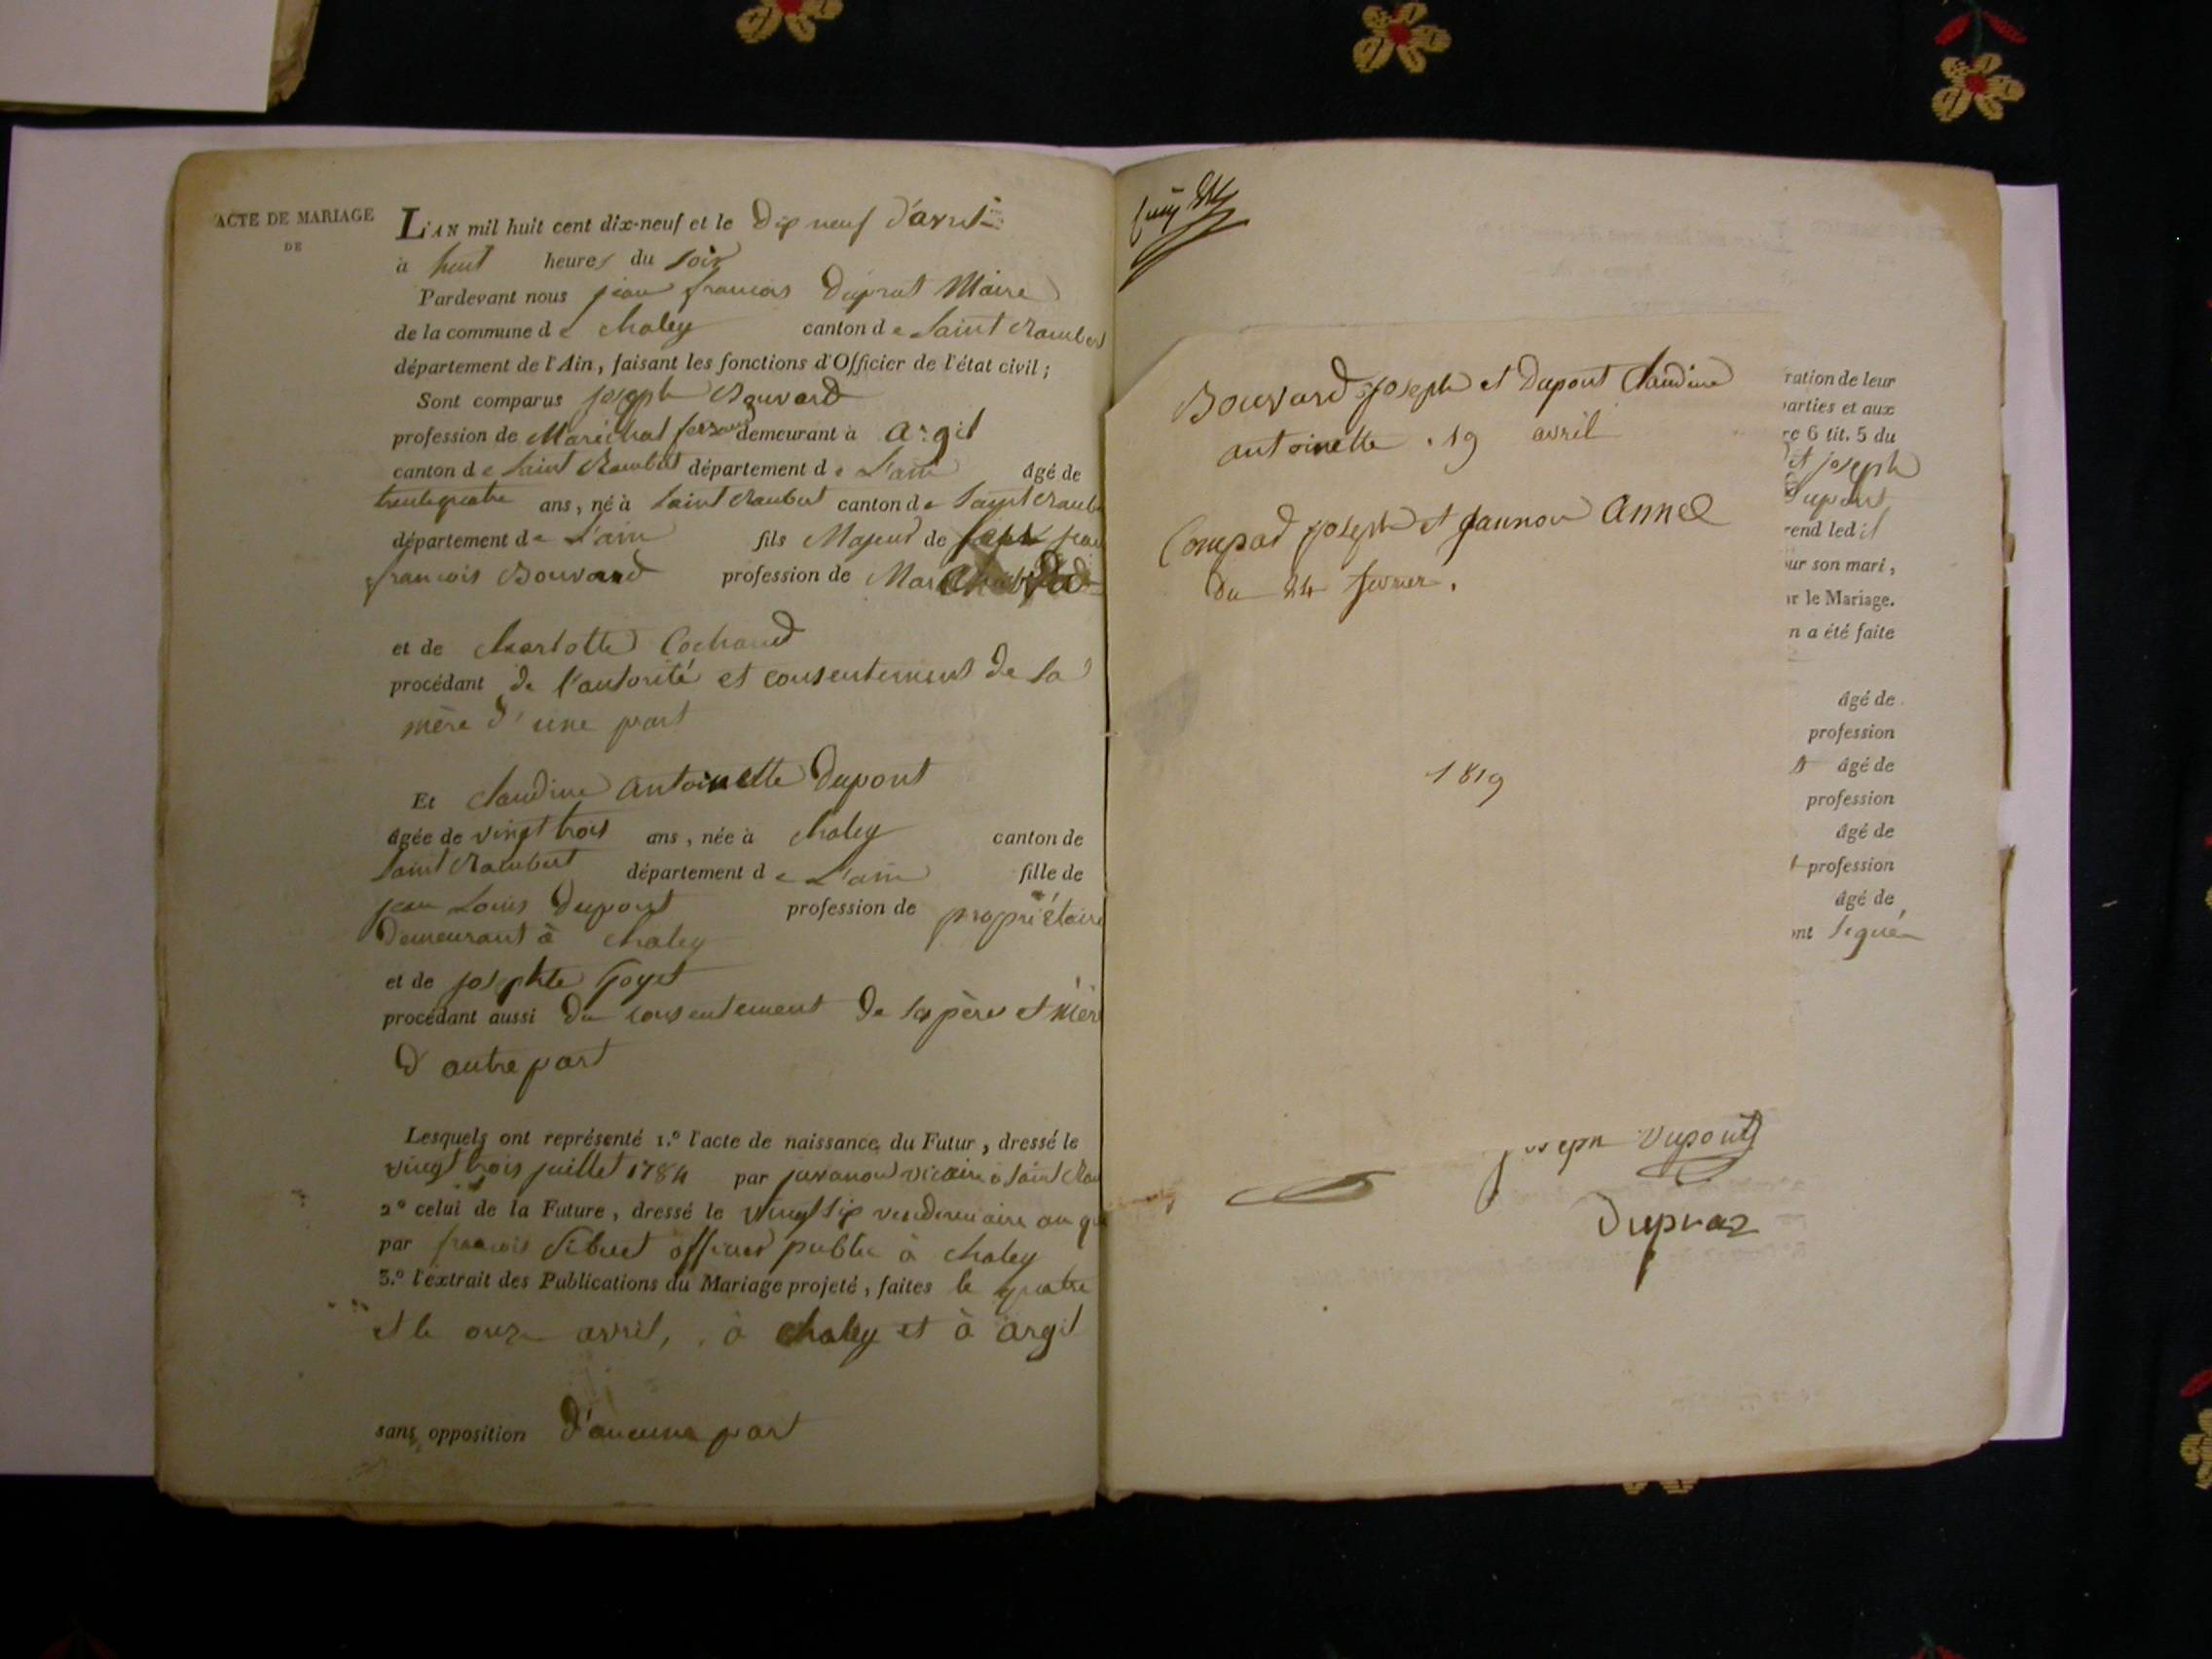 ACTE DE MARIAGE
DE
L'AN mil huit cent dix-neuf et le Dix neuf d'avril
à huit heures du soir
Pardevant nous jean francois Dupraz Maire
de la commune de chaley canton de Saint Rambert
département de l'Ain, faisant les fonctions d'Officier de l'état civil;
Sont comparus joseph Bouvard
profession de Maréchal demeurant à Argil
canton de Saint Rambert département de L'ain âgé de
trente quatre ans, né à Saint Rambert canton de Saint Ramb
département de L'ain fils Majeur de jean
francois Bouvard profession de
et de charlotte Cochaud
procédant de l'autorité et consentement de sa
mère d'une part
Et claudine antoinette Dupont
âgée de vingt trois ans, née à chaley canton de
Saint Rambert département de L'ain fille de
jean Louis Dupont profession de propriétaire
Demeurant à chaley
et de josephte Goyet
procédant aussi du consentement de ses père et mèr
d'autre part
Lesquels ont représenté 1.° l'acte de naissance du Futur, dressé le
vingt trois juillet 1784 par juvanon vicaire à Saint Ram
2° celui de la Future, dressé le vingt six vendemiaire an qu
par francois Sibuet officier public à chaley
3.° l'extrait des Publications du Mariage projeté, faites le quatre
et le onze avril, à chaley et à Argil
sans opposition d'aucune part
Bouvard joseph et Dupont Claudine
antoinette . 19 avril
joseph et jannon Annee
Du 24 fevrier.
1819
joseph Dupont
Dupraz
ration de leur
arties et aux
re 6 tit. 5 du
et joseph
Dupont
rend ledit
ur son mari,
r le Mariage.
n a été faite
âgé de
profession
âgé de
profession
âgé de
profession
âgé de
nt signé